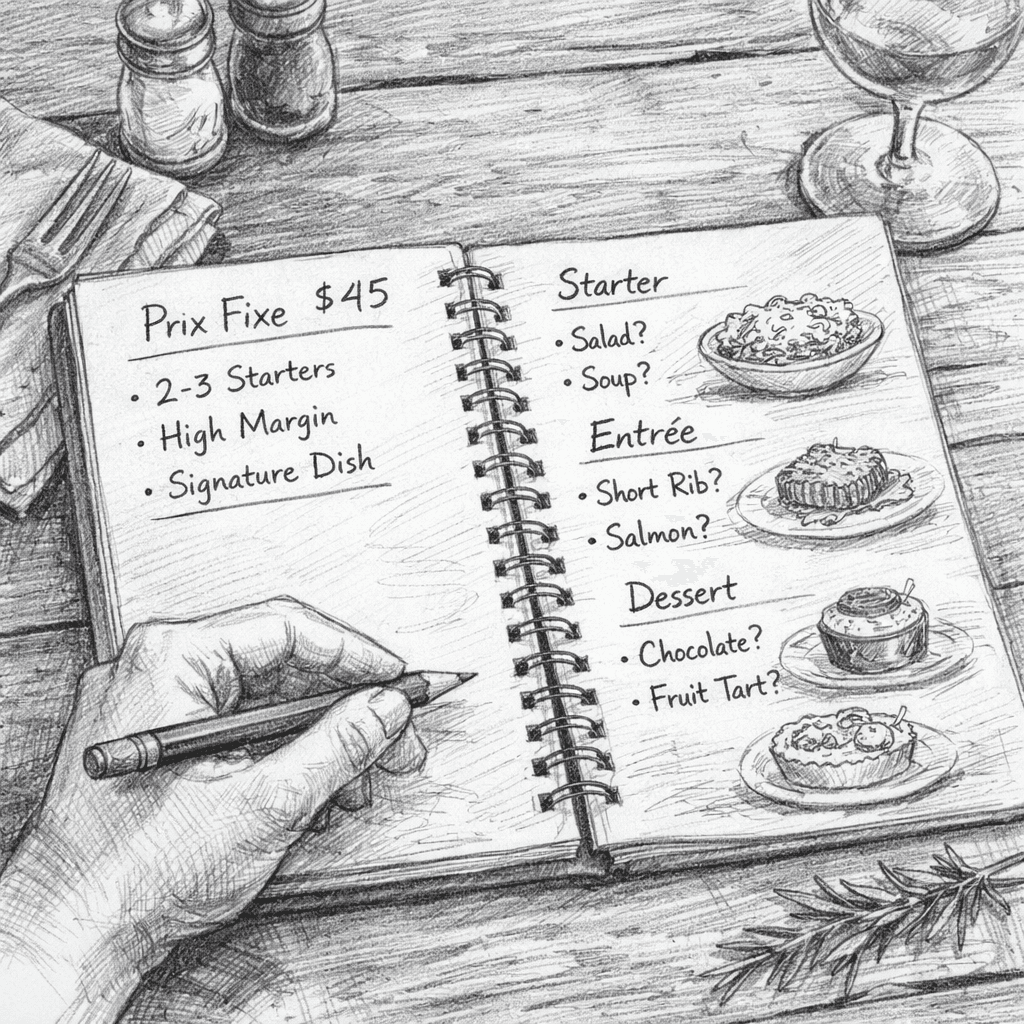 Prix Fixe $45
• 2-3 Starters
• High Margin
• Signature Dish
Starter
• Salad?
• Soup?
Entrée
• Short Rib?
• Salmon?
Dessert
• Chocolate?
• Fruit Tart?